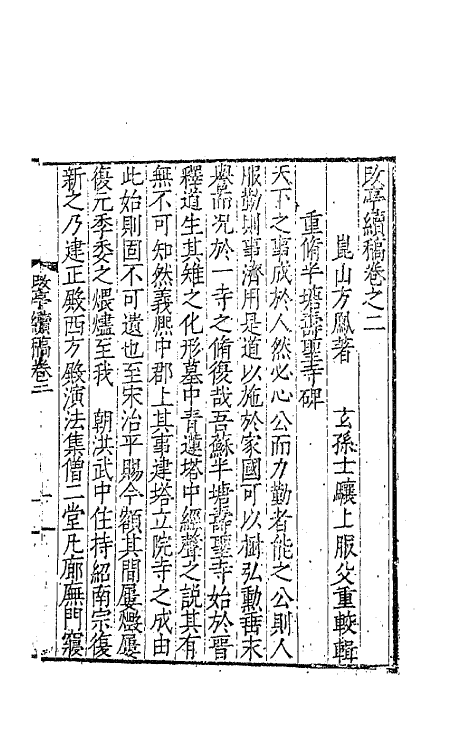 改亭續稿卷之二
崑山方鳳著　玄孫士驤上服父重較輯
重脩半塘壽聖寺碑
天下之事成於人然必心公而力勤者能之公則人
服勤則事濟用是道以施於家國可以樹弘勳垂末
譽而况於一寺之脩復哉吾蘇半塘壽聖寺始於晉
釋道生其雉之化形墓中青蓮塔中經聲之說其有
無不可知然義熙中郡上其事建塔立院寺之成由
此始則固不可遺也至宋治平賜今額其間屢燬屢
復元季委之煨燼至我　朝洪武中住持紹南宗復
新之乃建正殿西方殿演法集僧二堂凡廊廡門寢
改亭續稿卷二